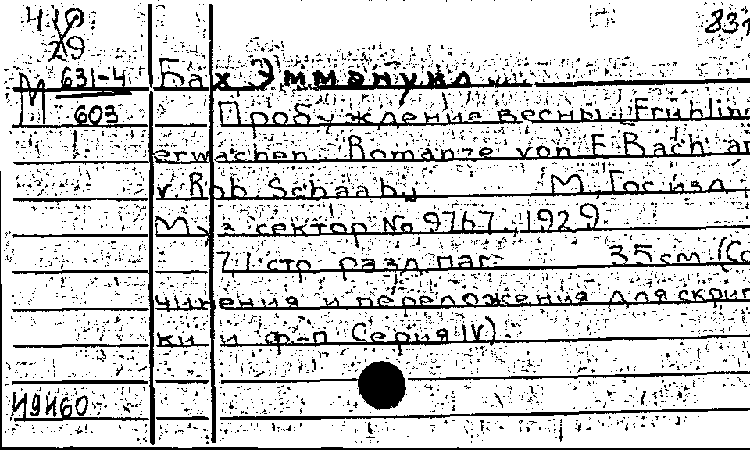 419
29
831
М 631-4
603
Бах Эммануил
Пробуждение весны. Frühlin
erwachen Romanze von E Bach ar
v. Rob. Schaaby М, Госизд
Муз. сектор № 9767, 1929.
7,1 стр. разд паг. 35 см. (Со
чинения и переложения для скрип
ки и ф-п Серия IV).
И9И60